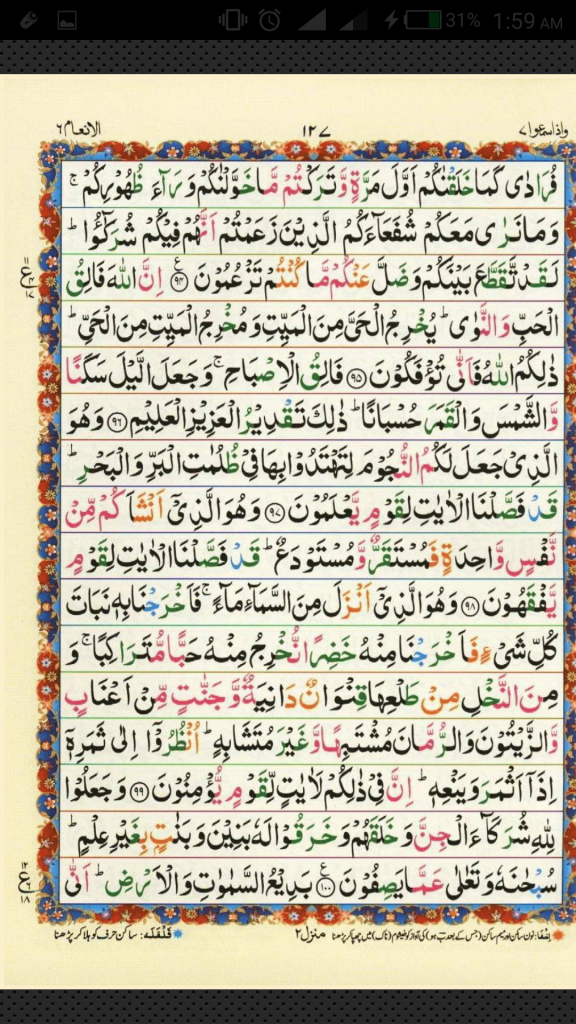 31% 1:59 AM
واذاسمعوا ٧ ١٢٧ الانعام ٦
فُرَادٰى كَمَا خَلَقْنٰكُمْ اَوَّلَ مَرَّةٍ وَّتَرَكْتُمْ مَّا خَوَّلْنٰكُمْ وَرَآءَ ظُهُوْرِكُمْ ۚ
وَمَا نَرٰى مَعَكُمْ شُفَعَآءَكُمُ الَّذِيْنَ زَعَمْتُمْ اَنَّهُمْ فِيْكُمْ شُرَكٰٓؤُا ؕ
لَقَدْ تَّقَطَّعَ بَيْنَكُمْ وَضَلَّ عَنْكُمْ مَّا كُنْتُمْ تَزْعُمُوْنَ ۟ع ﴿۹۴﴾ اِنَّ اللّٰهَ فَالِقُ
الْحَبِّ وَالنَّوٰى ؕ يُخْرِجُ الْحَىَّ مِنَ الْمَيِّتِ وَمُخْرِجُ الْمَيِّتِ مِنَ الْحَىِّ ؕ
ذٰلِكُمُ اللّٰهُ فَاَنّٰى تُؤْفَكُوْنَ ﴿۹۵﴾ فَالِقُ الْاِصْبَاحِ ۚ وَجَعَلَ الَّيْلَ سَكَنًا
وَّالشَّمْسَ وَالْقَمَرَ حُسْبَانًا ؕ ذٰلِكَ تَقْدِيْرُ الْعَزِيْزِ الْعَلِيْمِ ﴿۹۶﴾ وَهُوَ
الَّذِىْ جَعَلَ لَكُمُ النُّجُوْمَ لِتَهْتَدُوْا بِهَا فِىْ ظُلُمٰتِ الْبَرِّ وَالْبَحْرِ ؕ
قَدْ فَصَّلْنَا الْاٰيٰتِ لِقَوْمٍ يَّعْلَمُوْنَ ﴿۹۷﴾ وَهُوَ الَّذِىْۤ اَنْشَاَكُمْ مِّنْ
نَّفْسٍ وَّاحِدَةٍ فَمُسْتَقَرٌّ وَّمُسْتَوْدَعٌ ؕ قَدْ فَصَّلْنَا الْاٰيٰتِ لِقَوْمٍ
يَّفْقَهُوْنَ ﴿۹۸﴾ وَهُوَ الَّذِىْۤ اَنْزَلَ مِنَ السَّمَآءِ مَآءً ۚ فَاَخْرَجْنَا بِهٖ نَبَاتَ
كُلِّ شَىْءٍ فَاَخْرَجْنَا مِنْهُ خَضِرًا نُّخْرِجُ مِنْهُ حَبًّا مُّتَرَاكِبًا ۚ وَ
مِنَ النَّخْلِ مِنْ طَلْعِهَا قِنْوَانٌ دَانِيَةٌ وَّجَنّٰتٍ مِّنْ اَعْنَابٍ
وَّالزَّيْتُوْنَ وَالرُّمَّانَ مُشْتَبِهًا وَّغَيْرَ مُتَشَابِهٍ ؕ اُنْظُرُوْۤا اِلٰى ثَمَرِهٖۤ
اِذَاۤ اَثْمَرَ وَيَنْعِهٖ ؕ اِنَّ فِىْ ذٰلِكُمْ لَاٰيٰتٍ لِّقَوْمٍ يُّؤْمِنُوْنَ ﴿۹۹﴾ وَجَعَلُوْا
لِلّٰهِ شُرَكَآءَ الْجِنَّ وَخَلَقَهُمْ وَخَرَقُوْا لَهٗ بَنِيْنَ وَبَنٰتٍ بِغَيْرِ عِلْمٍ ؕ
سُبْحٰنَهٗ وَتَعٰلٰى عَمَّا يَصِفُوْنَ ۟ع ﴿۱۰۰﴾ بَدِيْعُ السَّمٰوٰتِ وَالْاَرْضِ ؕ اَنّٰى
اخفا: نون ساکن اور میم ساکن (جس کے بعد ب ہو) کی آواز کو خیشوم (ناک) میں چھپا کر پڑھنا منزل ۲ قلقلہ: ساکن حرف کو ہلا کر پڑھنا